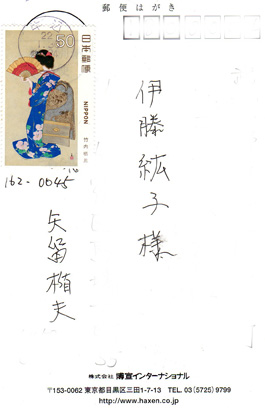 郵便はがき
22
50
日本郵便
NIPPON
伊藤紘子様
162-0045
矢留楢夫
株式会社 博宣インターナショナル
〒153-0062 東京都目黒区三田1-7-13 TEL. 03 (5725) 9799
http://www.haxen.co.jp